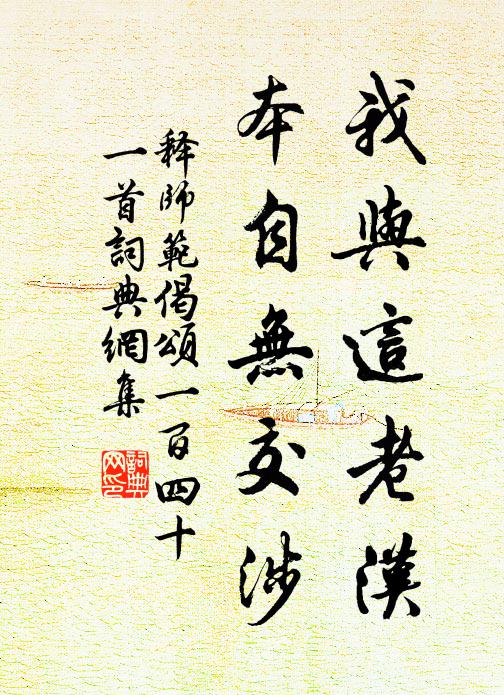 我與這老漢
本自無交涉
释師範偈頌一百四十
一首詞典網集
詞典
网印